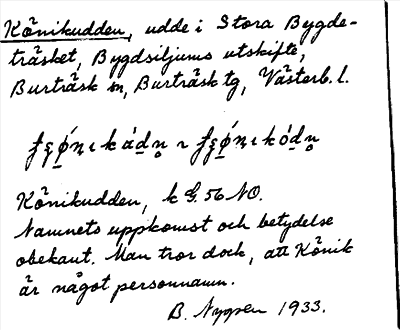 Könikudden, udde i Stora Bygde-
träsket, Bygdsiljums utskifte,
Burträsk sn, Burträsk tg, Västerb. l.
Könikudden, k G. 56 NO.
Namnets uppkomst och betydelse
obekant. Man tror dock, att Könik
är något personnamn.
B. 1933.